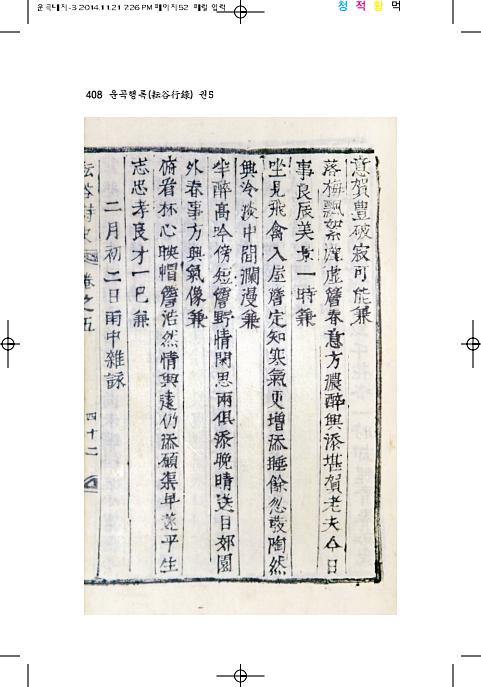 운곡내지-3 2014.11.21 7:26 PM 페이지52 매킬 입력
청 적 황 먹
408 운곡행록(耘谷行錄) 권5
意賀豊破寂可能兼
落梅飄絮灑虛簷春意方濃醉興添堪賀老夫今日
事良辰美景一時兼
坐見飛禽入屋簷定知寒氣更增添睡餘忽發陶然
興冷淡中間瀾漫兼
半醉高吟傍短簷野情閑思兩俱添晩晴送目郊園
外春事方興氣像兼
俯看杯心映帽簷浩然情興遠仍添願渠早遂平生
志忠孝良才一已兼
二月初二日雨中雜詠
耘谷詩史 卷之五 四十二